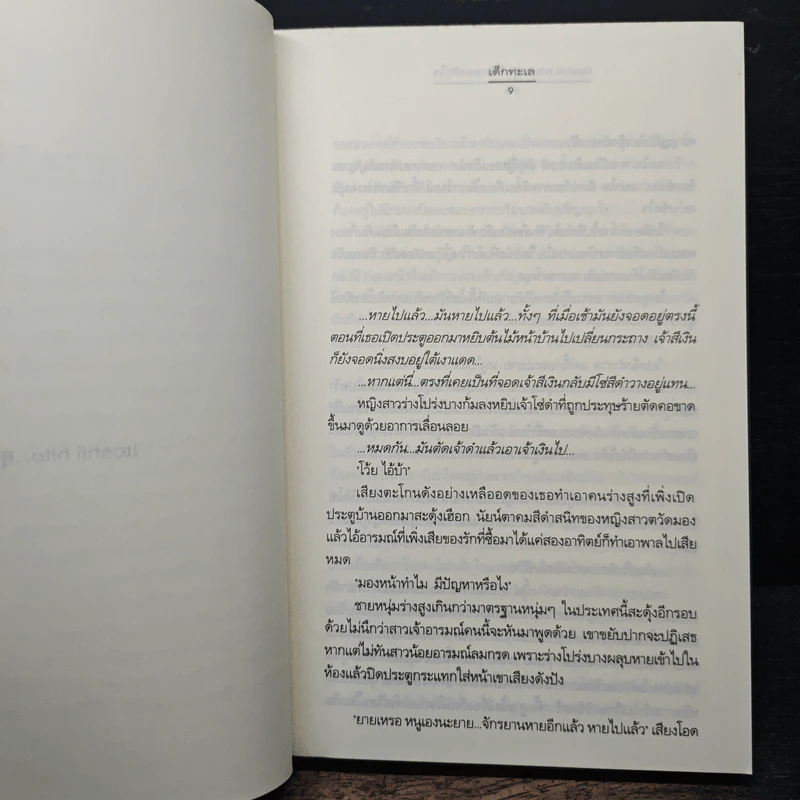 เด็กทะเล
9
...หายไปแล้ว...มันหายไปแล้ว...ทั้งๆ ที่เมื่อเช้ามันยังจอดอยู่ตรงนี้
ตอนที่เธอเปิดประตูออกมาหยิบต้นไม้หน้าบ้านไปเปลี่ยนกระถาง เจ้าสีเงิน
ก็ยังจอดนิ่งสงบอยู่ใต้เงาแดด...
...หากแต่นี่...ตรงที่เคยเป็นที่จอดเจ้าสีเงินกลับมีโซ่สีดำวางอยู่แทน...
หญิงสาวร่างโปร่งบางก้มลงหยิบเจ้าโซ่ดำที่ถูกประทุษร้ายตัดคอขาด
ขึ้นมาดูด้วยอาการเลื่อนลอย
...หมดกัน...มันตัดเจ้าดำแล้วเอาเจ้าเงินไป...
"โว้ย ไอ้บ้า"
เสียงตะโกนดังอย่างเหลืออดของเธอทำเอาคนร่างสูงที่เพิ่งเปิด
ประตูบ้านออกมาสะดุ้งเฮือก นัยน์ตาคมสีดำสนิทของหญิงสาวตวัดมอง
แล้วไอ้อารมณ์ที่เพิ่งเสียของรักที่ซื้อมาได้แค่สองอาทิตย์ก็ทำเอาพาลไปเสีย
หมด
"มองหน้าทำไม มีปัญหาหรือไง"
ชายหนุ่มร่างสูงเกินกว่ามาตรฐานหนุ่มๆ ในประเทศนี้สะดุ้งอีกรอบ
ด้วยไม่นึกว่าสาวเจ้าอารมณ์คนนี้จะหันมาพูดด้วย เขาขยับปากจะปฏิเสธ
หากแต่ไม่ทันสาวน้อยอารมณ์ลมกรด เพราะร่างโปร่งบางผลุบหายเข้าไปใน
ห้องแล้วปิดประตูกระแทกใส่หน้าเขาเสียงดังปัง
"ยายเหรอ หนูเองนะยาย...จักรยานหายอีกแล้ว หายไปแล้ว" เสียงโอด